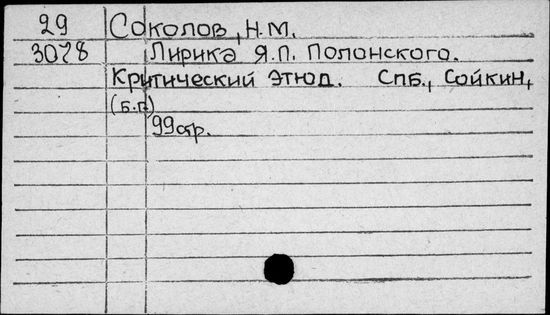 29 Соколов, Н.М.
3078 Лирика Я.П. Полонского.
Критический этюд. Спб., Сойкин,
(б.г.)
99стр.